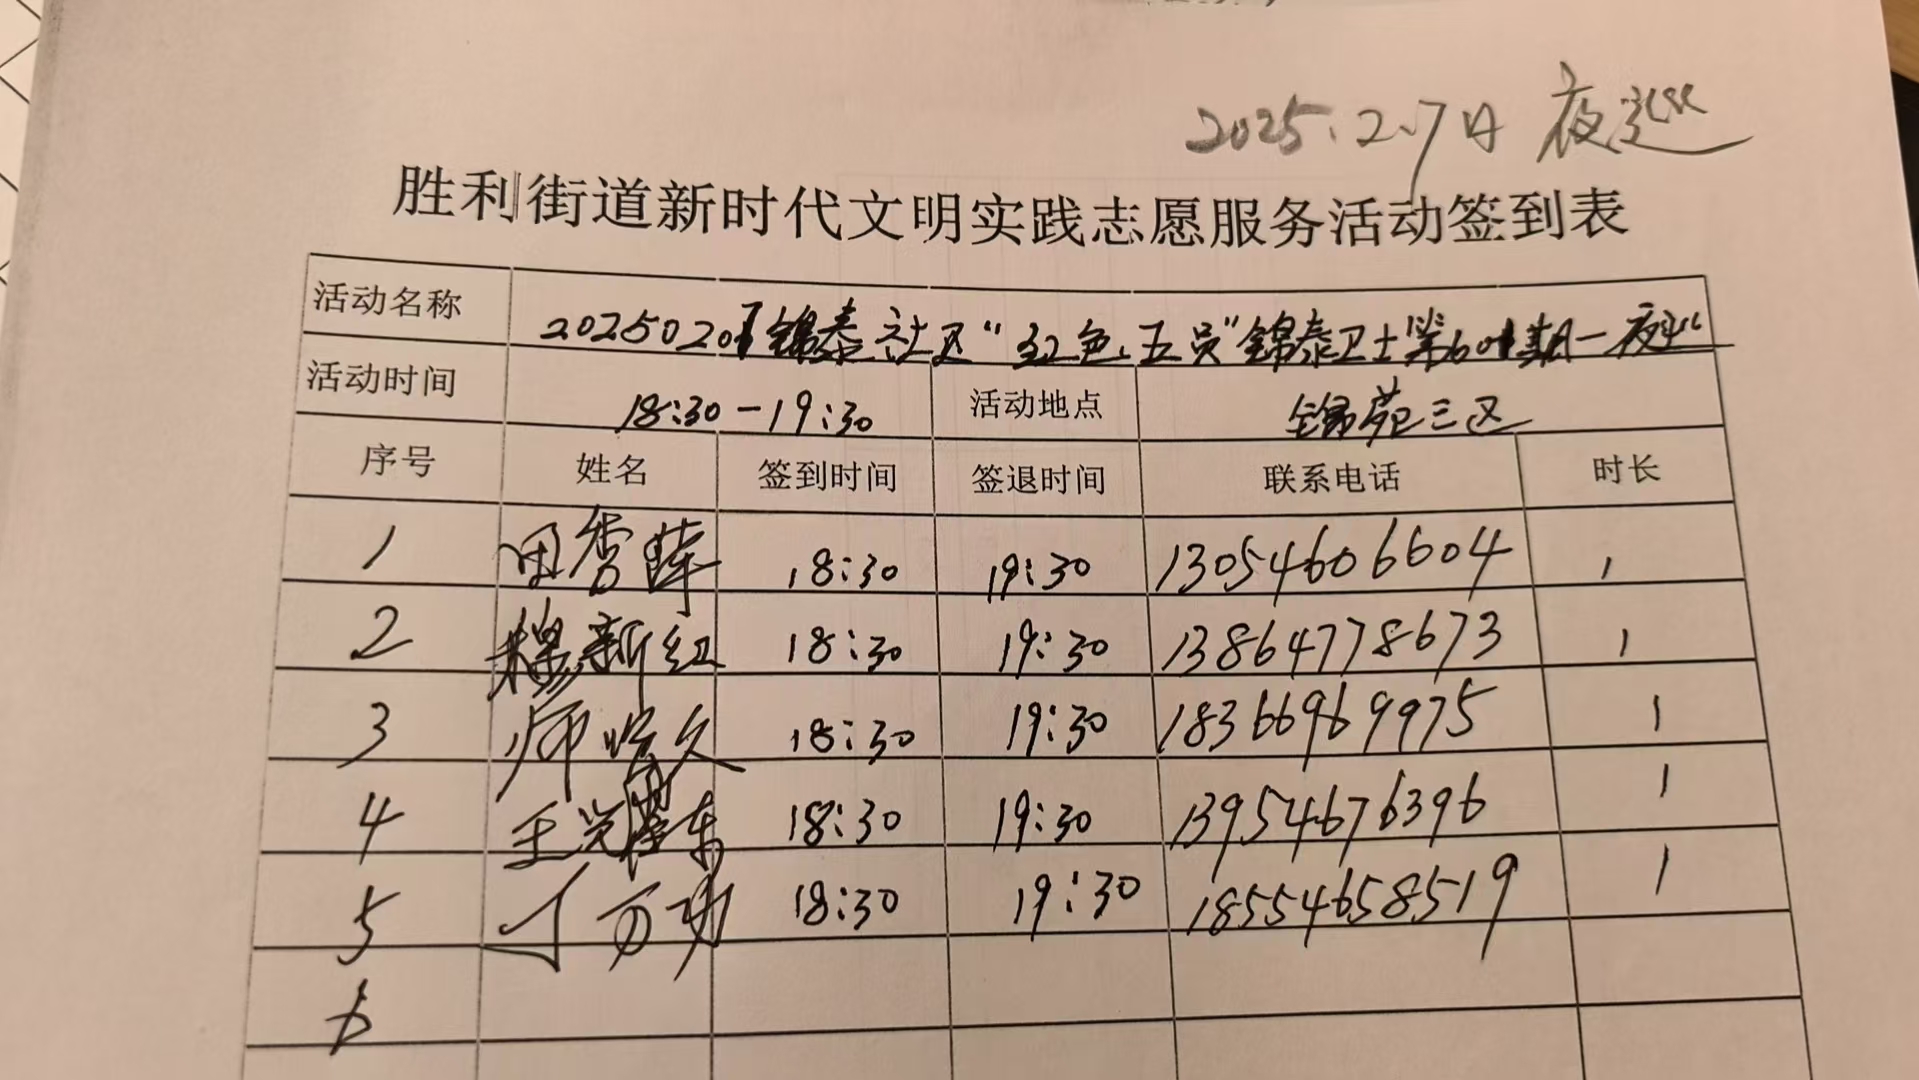 2025.2.7日 夜巡
胜利街道新时代文明实践志愿服务活动签到表
活动名称 20250207锦泰社区“红色五员”锦泰卫士第 期一夜巡
活动时间 18:30-19:30 活动地点 锦苑三区
序号 姓名 签到时间 签退时间 联系电话 时长
1 田秀萍 18:30 19:30 13054606604 1
2 穆新红 18:30 19:30 13864778673 1
3 师 久 18:30 19:30 18366969975 1
4 王 东 18:30 19:30 13954676396 1
5 丁万功 18:30 19:30 18554658519 1
6